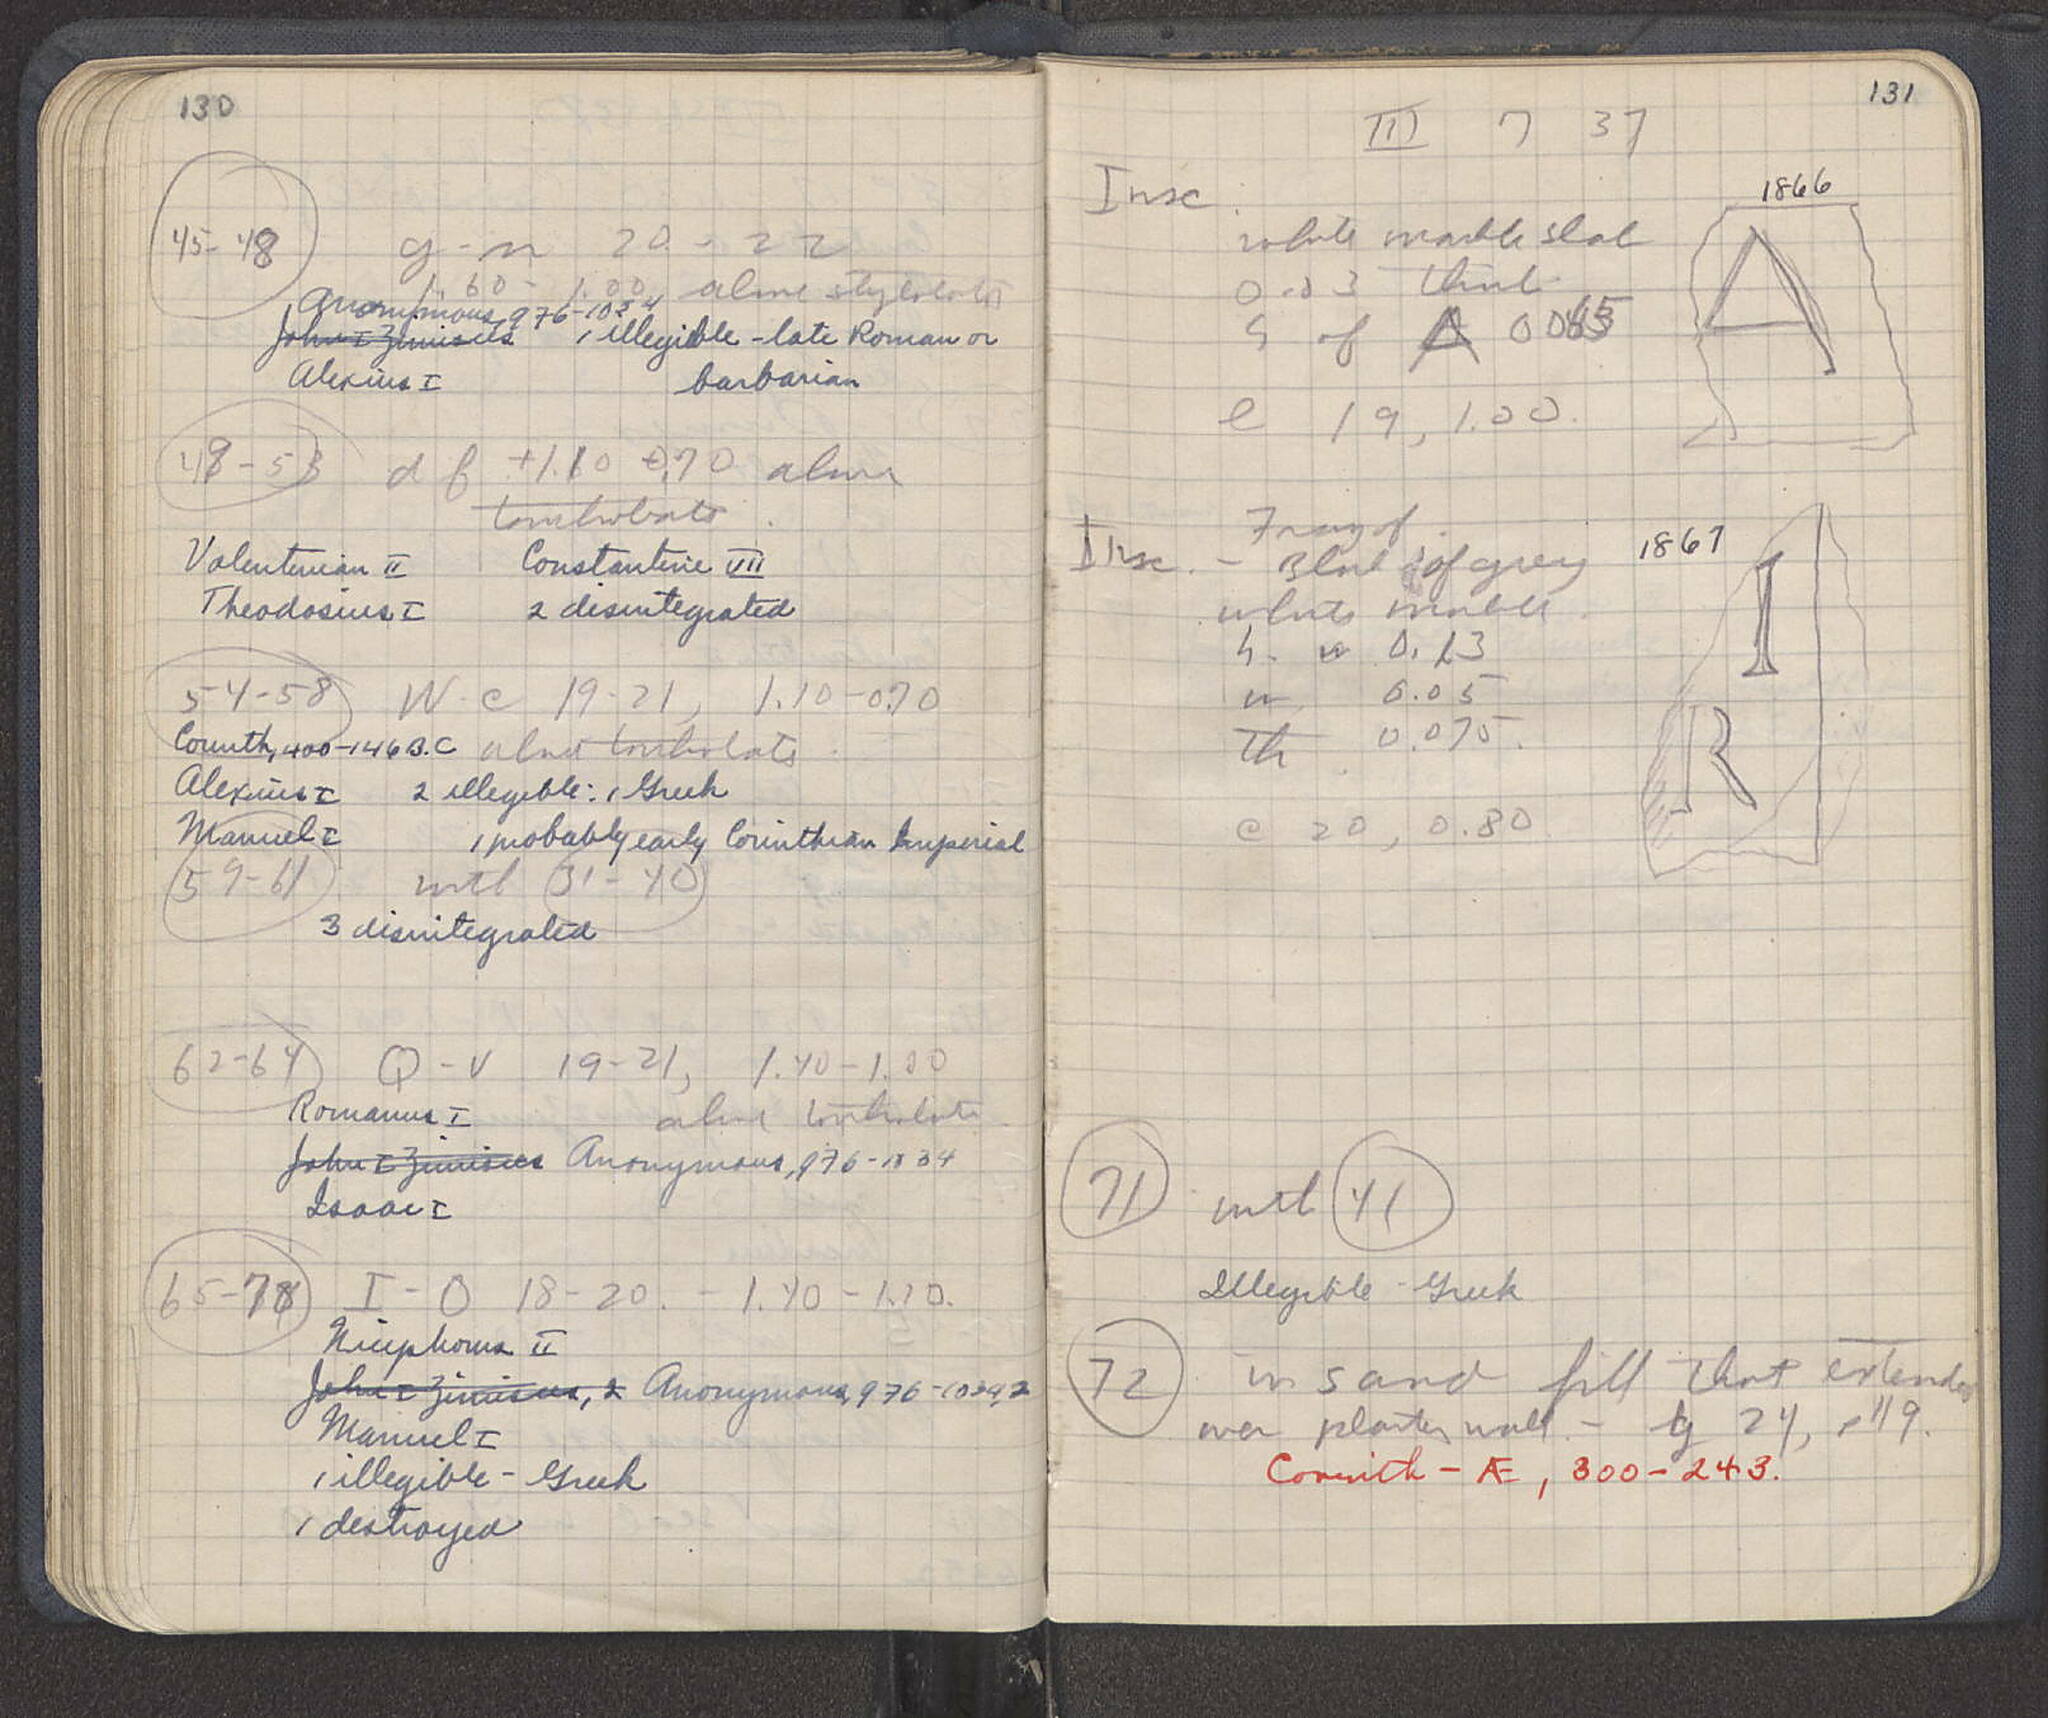 130
45-48 g-n 20-22
1.60-1.00 above stylobate
Anonymous, 976-1034
John I Zimisces 1 illegible - late Roman or
Alexius I barbarian
48-53 d f +1.10 0.70 above
Valentinian II Constantine VII
Theodosius I 2 disintegrated
54-58 W-c 19-21, 1.10-0.70
Corinth, 400-146 B.C. above
Alexius I 2 illegible: 1 Greek
Manuel I 1 probably early Corinthian Imperial
59-61 with 31-40
3 disintegrated
62-64 Q-V 19-21, 1.40-1.00
Romanus I above
John I Zimisces Anonymous, 976-1034
Isaac I
65-78 I-O 18-20. - 1.40-1.10.
Nicephorus II
John I Zimisces, 2 Anonymous, 976-1034, 2
Manuel I
1 illegible - Greek
1 destroyed
131
III 7 37
Insc. 1866
white marble slab
0.03 thick
h of A
A
e 19, 1.00.
Frag of
Insc. - Block of grey 1867
white marble.
h. 0.13
w 0.05
Th 0.075.
I
R
c 20, 0.80
71 with 41
Illegible - Greek
72 in sand fill that extends
over plaster wall - 24,
Corinth - Æ, 300-243.